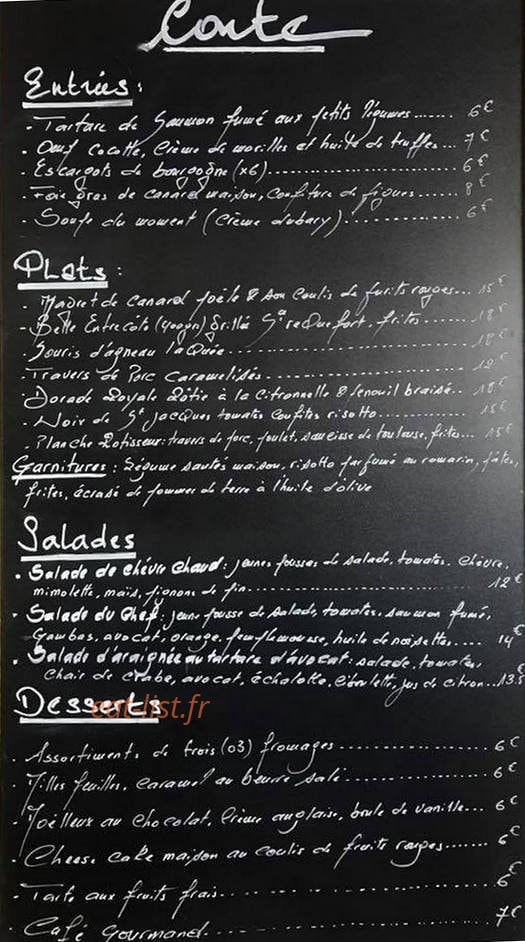 Carte
Entrées :
- Tartare de Saumon fumé aux petits légumes ...... 6€
- Oeuf Cocotte, Crème de morilles et huile de truffes ... 7€
- Escargots de bourgogne (x6) ............ 6€
- Foie gras de canard maison, confiture de figues ...... 8€
- Soupe du moment (Crème dubary) ! ............ 6€
Plats :
- Magret de Canard poêlé & son Coulis de fruits rouges ... 15€
- Belle Entrecôte (400gn) Grillée, frites ...... 18€
- Souris d'agneau laquée ............ 18€
- Travers de Porc Caramélisés ............
- Dorade Royale Rotie à la Citronnelle & fenouil braisé .. 18€
- Noix de St Jacques tomates Confites risotto ...... 15€
- Planche Rotisseur: travers de porc, poulet, saucisse de toulouse, frites ... 15€
Garnitures : légume sautés maison, risotto parfumé au romarin, pâtes,
frites, écrasé de pommes de terre à l'huile d'olive
Salades
- Salade de chèvre Chaud : jeunes pousses de salade, tomates, chèvre,
mimolette, maïs, pignons de pin ............ 12€
- Salade du Chef : jeune pousse de salade, tomates, saumon fumé,
gambas, avocat, orange, pamplemousse, huile de noisettes .... 14€
- Salade d'araignée au tartare d'avocat : salade, tomates,
Chair de Crabe, avocat, échalotte, Ciboulette, jus de citron ... 13.5€
Desserts
eat-list.fr
- Assortiments de trois (03) fromages ............ 6€
- Milles feuilles, Caramel au beurre salé ............ 6€
- Moëlleux au Chocolat, Crème anglaise, boule de vanille ... 6€
- Cheese Cake maison au Coulis de fruits rouges ...... 6€
- Tarte aux fruits frais ............ 6€
- Café gourmand ............ 7€